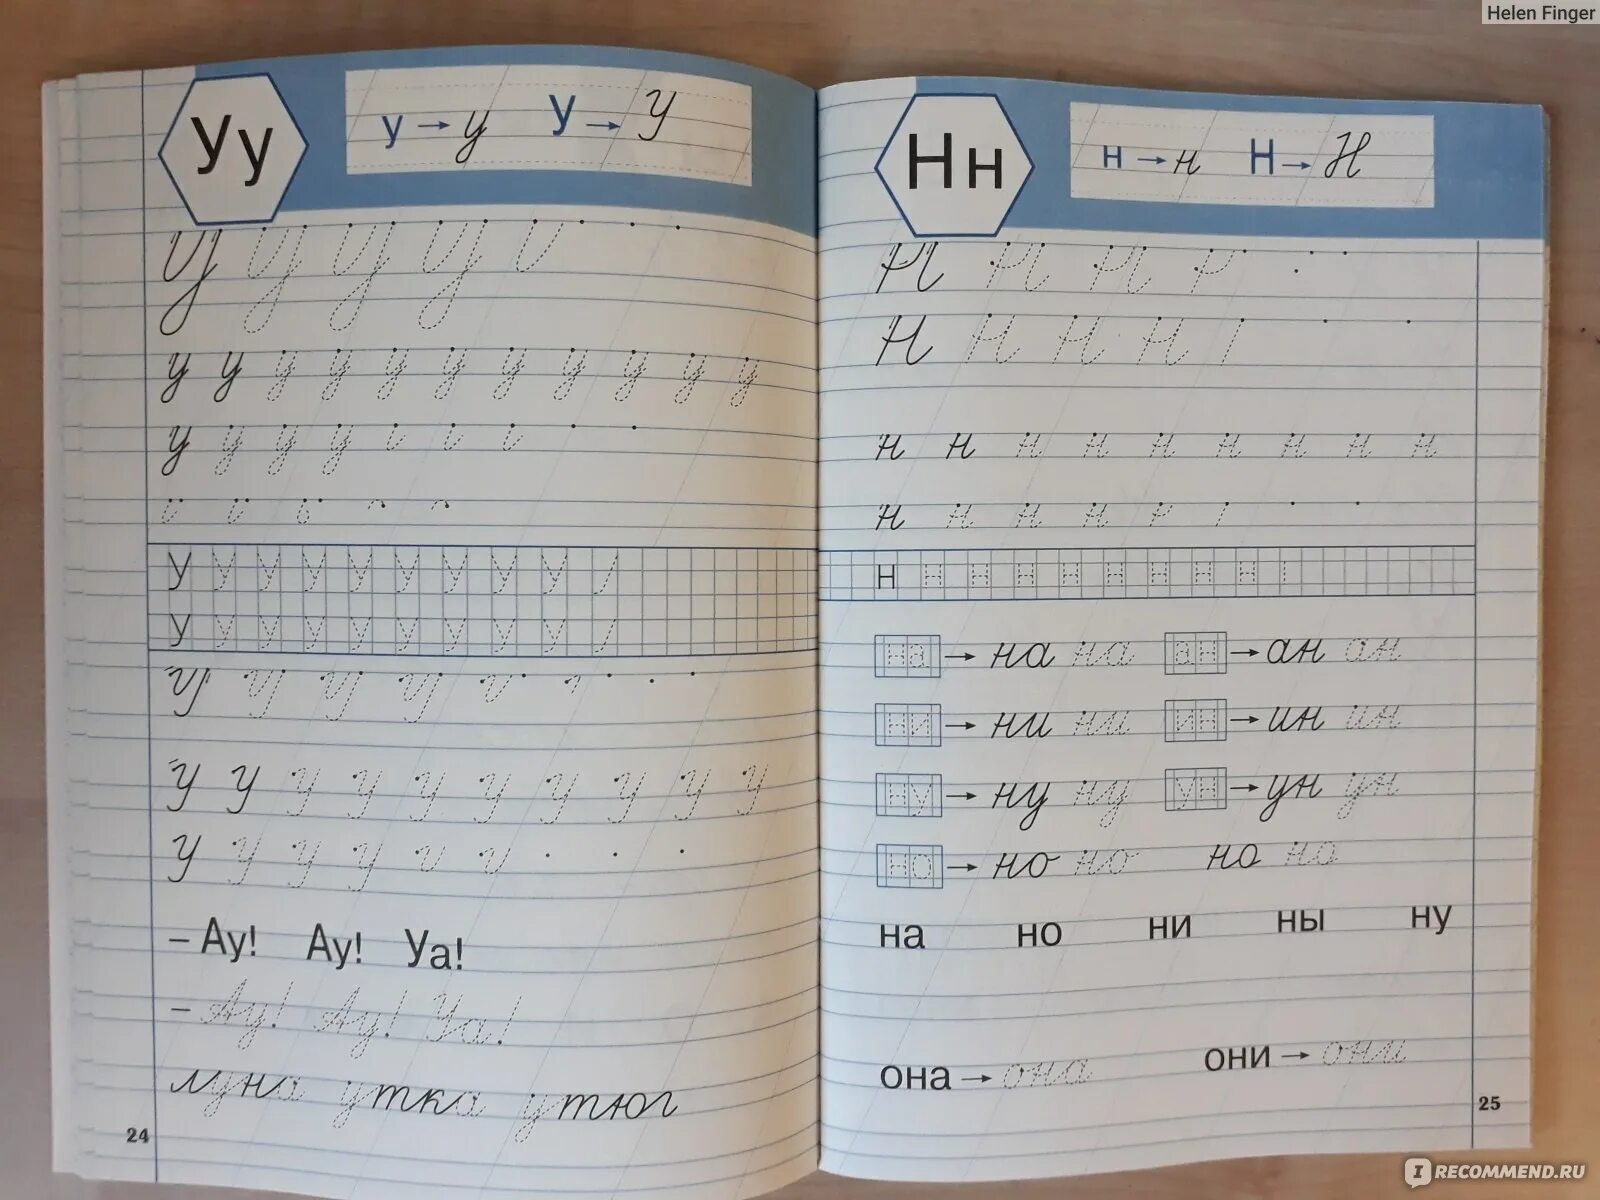 Helen Finger
Уу
у → у У → У
У У У У
у у у у у у у у у у у
у у у у
У У У У У У У У У
У У У У У У У У У
У У У У
У У У У У У У У У У
У У У У
– Ау! Ау! Уа!
– Ау! Ау! Уа!
луна утка утюг
24
Нн
н → н Н → Н
Н Н Н
Н Н Н Н
н н н н н н н н н
н н н н
н н н н н н н н н
на → на на ан → ан ан
ни → ни ни ин → ин ин
ну → ну ну ун → ун ун
но → но но но но
на но ни ны ну
она → она они → они
25
IRECOMMEND.RU